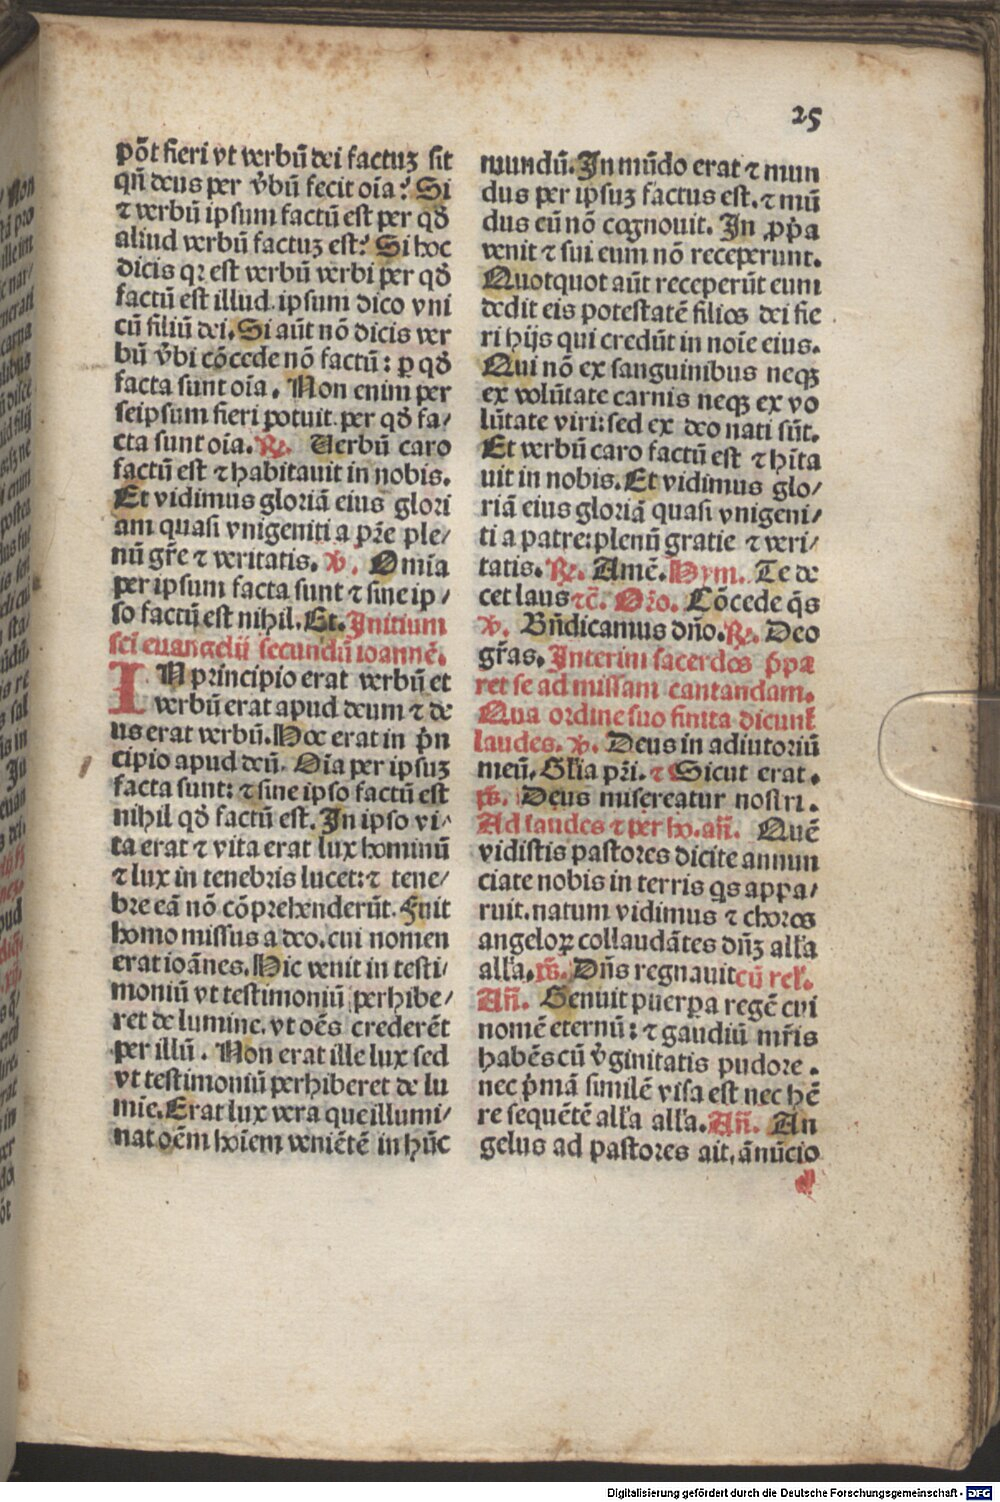 25
põt fieri vt verbũ dei factuꝫ sit
qñ deus per v̓bũ fecit oĩa? Si
⁊ verbũ ipsum factũ est per qḋ
aliud verbũ factuꝫ est? Si hoc
dicis qꝛ est verbũ verbi per qḋ
factũ est illud. ipsum dico vni
cũ filiũ dei. Si aũt nõ dicis ver
bũ v̓bi cõcede nõ factũ: ꝑ qḋ
facta sunt oĩa. Non enim per
seipsum fieri potuit. per qḋ fa/
cta sunt oĩa. ℟. Uerbũ caro
factũ est ⁊ habitauit in nobis.
Et vidimus gloriã eius glori
am quasi vnigeniti a pr̃e ple/
nũ gr̃e ⁊ veritatis. ℣. Omĩa
per ipsum facta sunt ⁊ sine ip/
so factũ est nihil. Et. Initium
sc̃i euangelij secundũ ioannẽ.
IN principio erat verbũ et
verbũ erat apud deum ⁊ de
us erat verbũ. Hoc erat in p̃n
cipio apud deũ. Oĩa per ipsuꝫ
facta sunt: ⁊ sine ipso factũ est
nihil qḋ factũ est. In ipso vi/
ta erat ⁊ vita erat lux hominũ
⁊ lux in tenebris lucet: ⁊ tene/
bre eã nõ cõprehenderũt. Fuit
homo missus a deo. cui nomen
erat ioãnes. Hic venit in testi/
moniũ vt testimoniũ perhibe/
ret de lumine. vt oẽs crederẽt
per illũ. Non erat ille lux sed
vt testimoniũ perhiberet de lu
mĩe. Erat lux vera que illumi/
nat oẽm hoĩem veniẽtẽ in hũc
mundũ. In mũdo erat ⁊ mun
dus per ipsuꝫ factus est. ⁊ mũ
dus eũ nõ cognouit. In ꝓp̃a
venit ⁊ sui eum nõ receperunt.
Quotquot aũt receperũt eum
dedit eis potestatẽ filios dei fie
ri hijs qui credũt in noĩe eius.
Qui nõ ex sanguinibus neqꝫ
ex volũtate carnis neqꝫ ex vo
lũtate viri: sed ex deo nati sũt.
Et verbũ caro factũ est ⁊ hĩta
uit in nobis. Et vidimus glo/
riã eius gloriã quasi vnigeni/
ti a patre: plenũ gratie ⁊ veri/
tatis. ℟. Amẽ. Hym. Te de
cet laus ⁊c̃. Or̃o. Cõcede q̃s
℣. Bñdicamus dño. ℟. Deo
gr̃as. Interim sacerdos p̃pa
ret se ad missam cantandam.
Qua ordine suo finita dicunt̃
laudes. ℣. Deus in adiutoriũ
meũ. Gl̃ia pr̃i. ⁊ Sicut erat.
p̃s. Deus misereatur nostri.
Ad laudes ⁊ per ho. añ. Quẽ
vidistis pastores dicite annun
ciate nobis in terris q̃s appa/
ruit. natum vidimus ⁊ choros
angeloꝝ collaudãtes dñꝫ all̃a
all̃a. p̃s. Dñs regnauit cũ rel̃.
Añ. Genuit puerpa regẽ cui
nomẽ eternũ: ⁊ gaudiũ mr̃is
habẽs cũ v̓ginitatis pudore.
nec p̃mã similẽ visa est nec hẽ
re sequẽtẽ all̃a all̃a. Añ. An
gelus ad pastores ait. ãnũcio
Digitalisierung gefördert durch die Deutsche Forschungsgemeinschaft - DFG